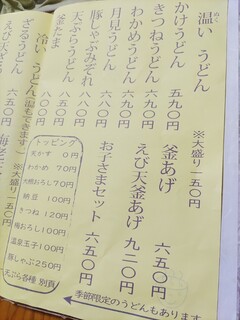 温い うどん
※大盛り一五〇円
かけうどん 五九〇円
きつねうどん 六五〇円
わかめうどん
月見うどん
豚しゃぶみぞれ 八八〇円
天ぷらうどん 八八〇円
釜たま
釜あげ 六五〇円
えび天釜あげ 九二〇円
お子さまセット 六五〇円
冷い うどん(温もできます)
※大盛り一五〇円
ざるうどん 六五〇円
えび天ざる
トッピング
天かす 0円
わかめ 70円
大根おろし 70円
納豆 100円
きつね 120円
梅おろし 100円
温泉玉子 100円
豚しゃぶ 250円
天ぷら各種 別頁
季節限定のうどんもあります